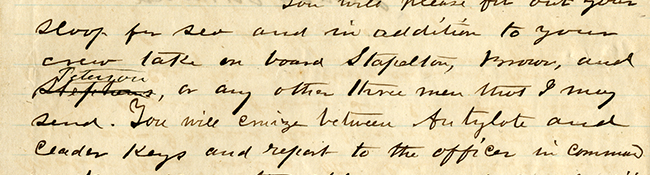 You will please fit out your
sloop for sea and in addition to your
crew take on board Stapelton, Brown, and
Peterson
Stephens, or any other three men that I may
send. You will cruize between Antylote and
Ceader Keys and report to the officer in command